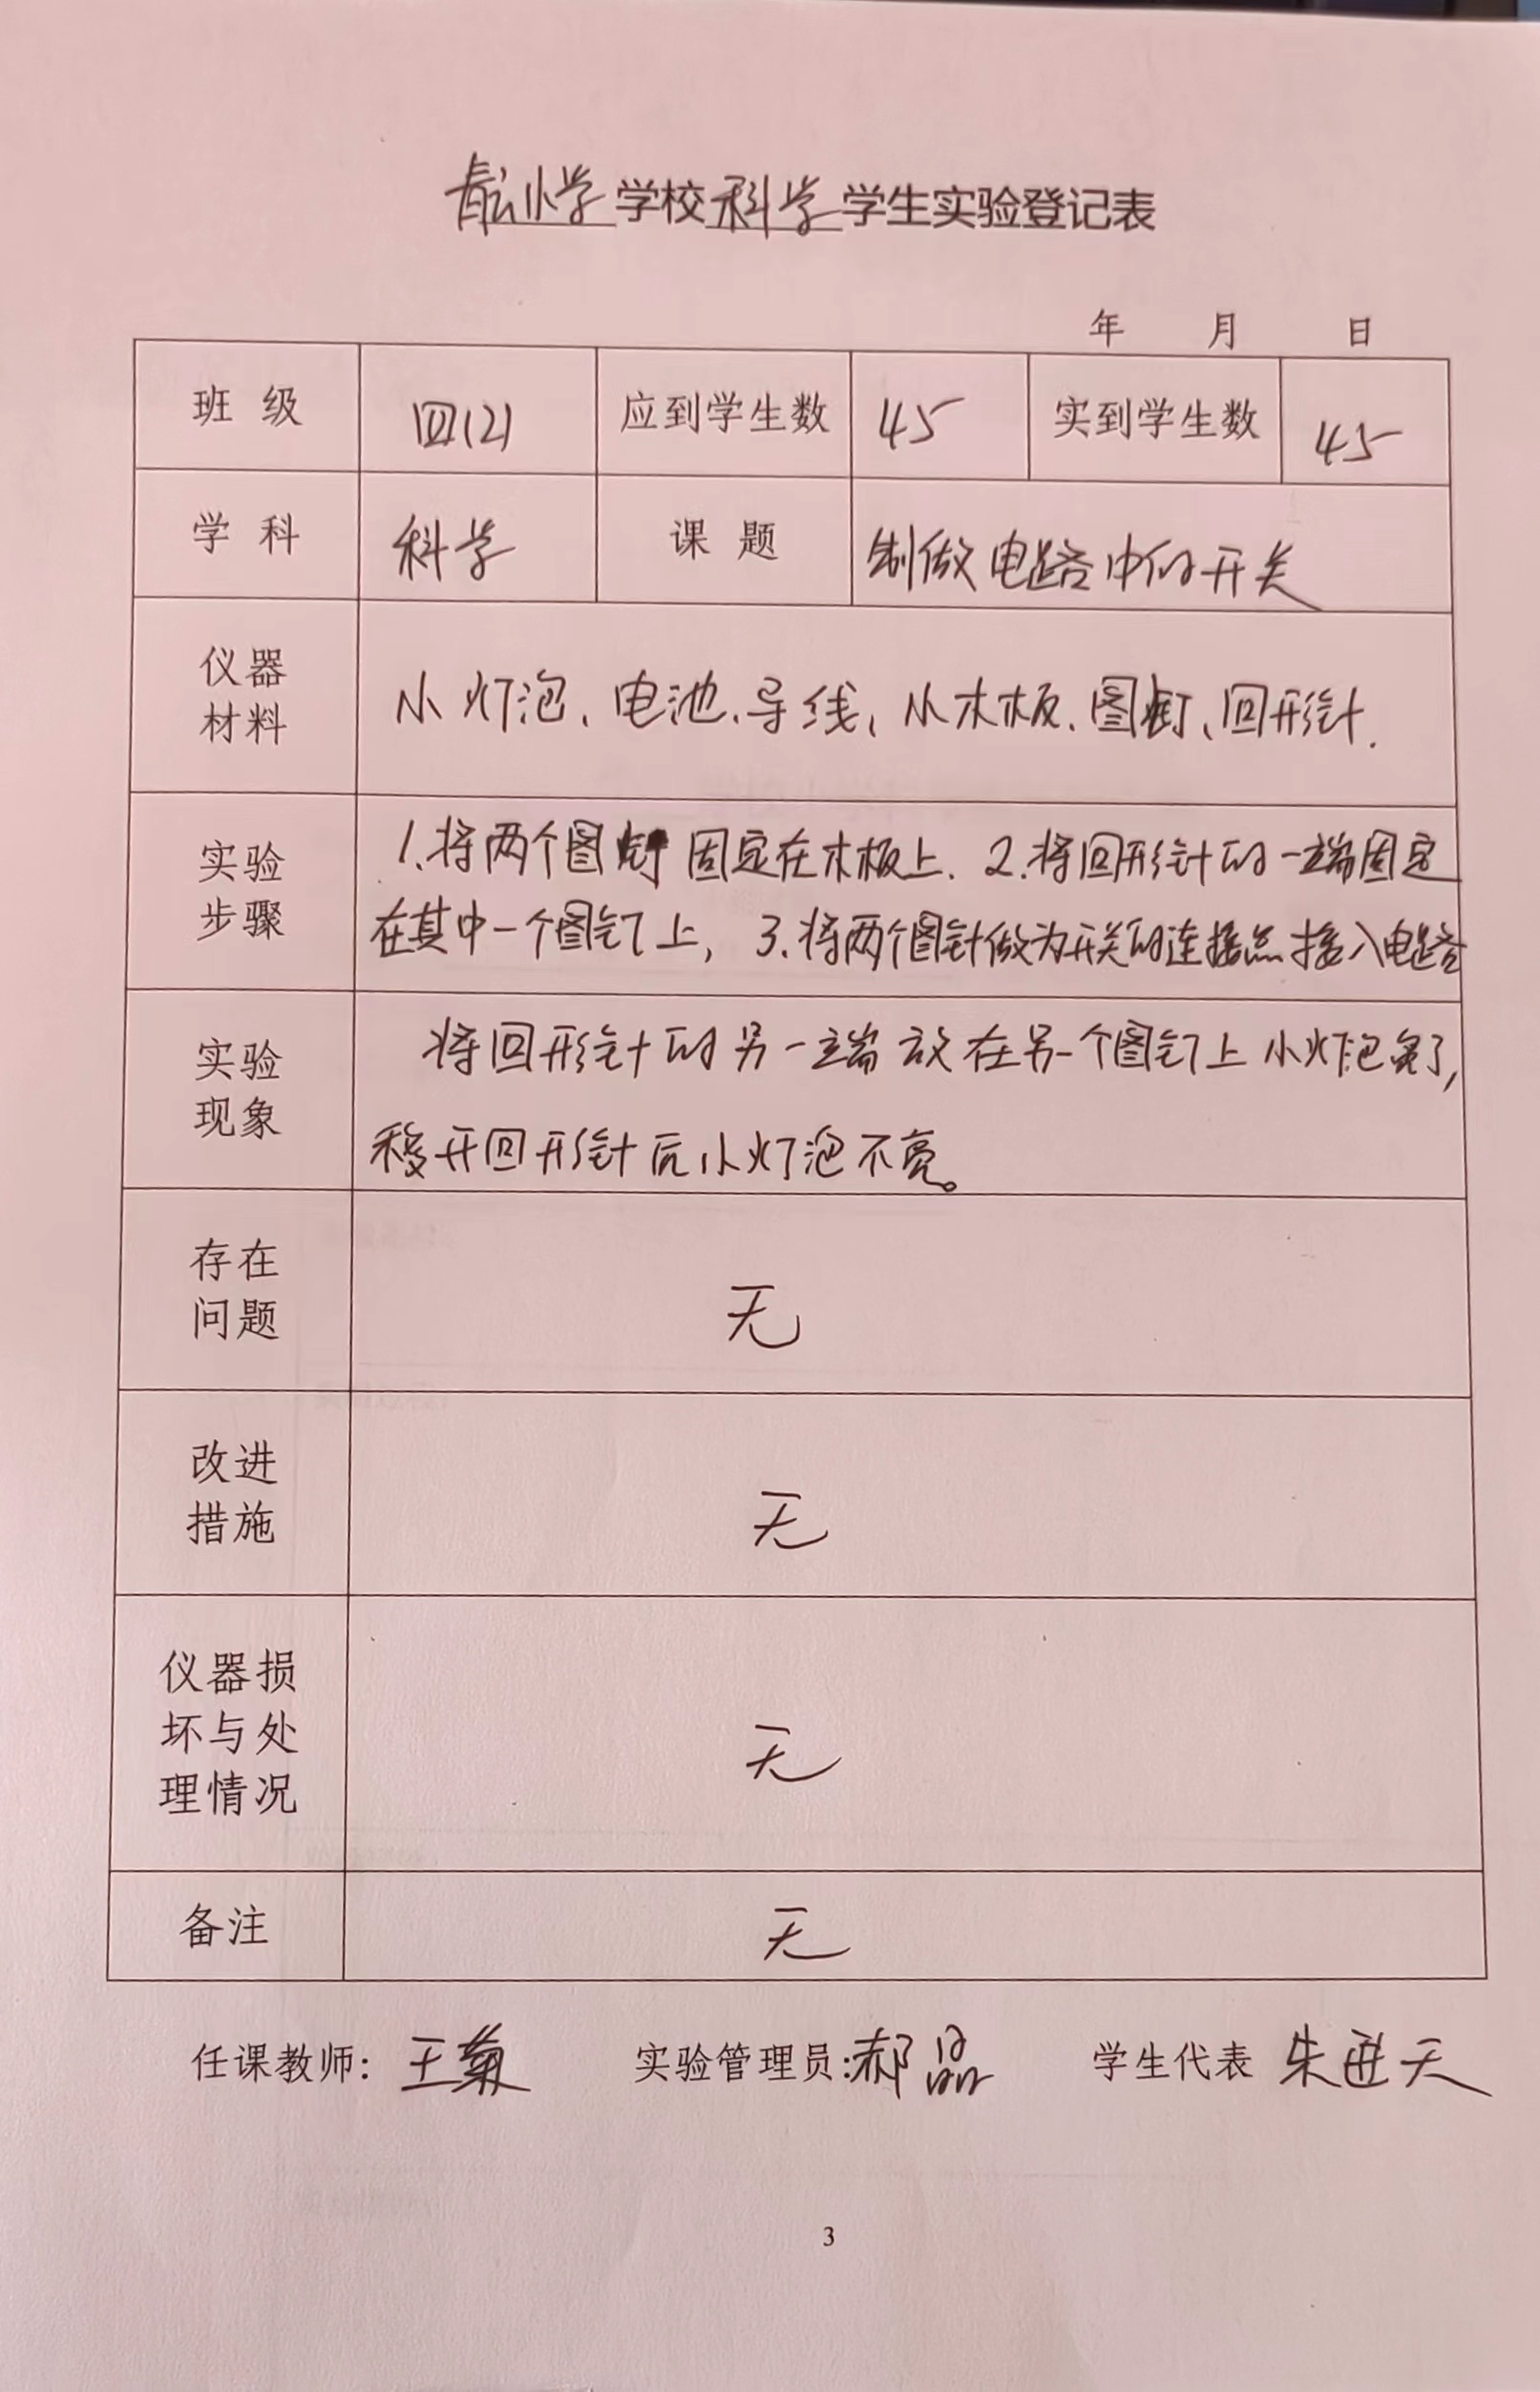 小学学校科学学生实验登记表
年 月 日
班 级 四(2) 应到学生数 45 实到学生数 45
学 科 科学 课 题 制做电路中的开关
仪器
材料
小灯泡、电池、导线、小木板、图钉、回形针.
实验
步骤
1.将两个图钉固定在木板上. 2.将回形针的一端固定
在其中一个图钉上, 3.将两个图针做为开关的连接点接入电路
实验
现象
将回形针的另一端放在另一个图钉上小灯泡亮了,
移开回形针后小灯泡不亮。
存在
问题
无
改进
措施
无
仪器损
坏与处
理情况
无
备注 无
任课教师: 王菊 实验管理员:郝晶 学生代表 朱天
3